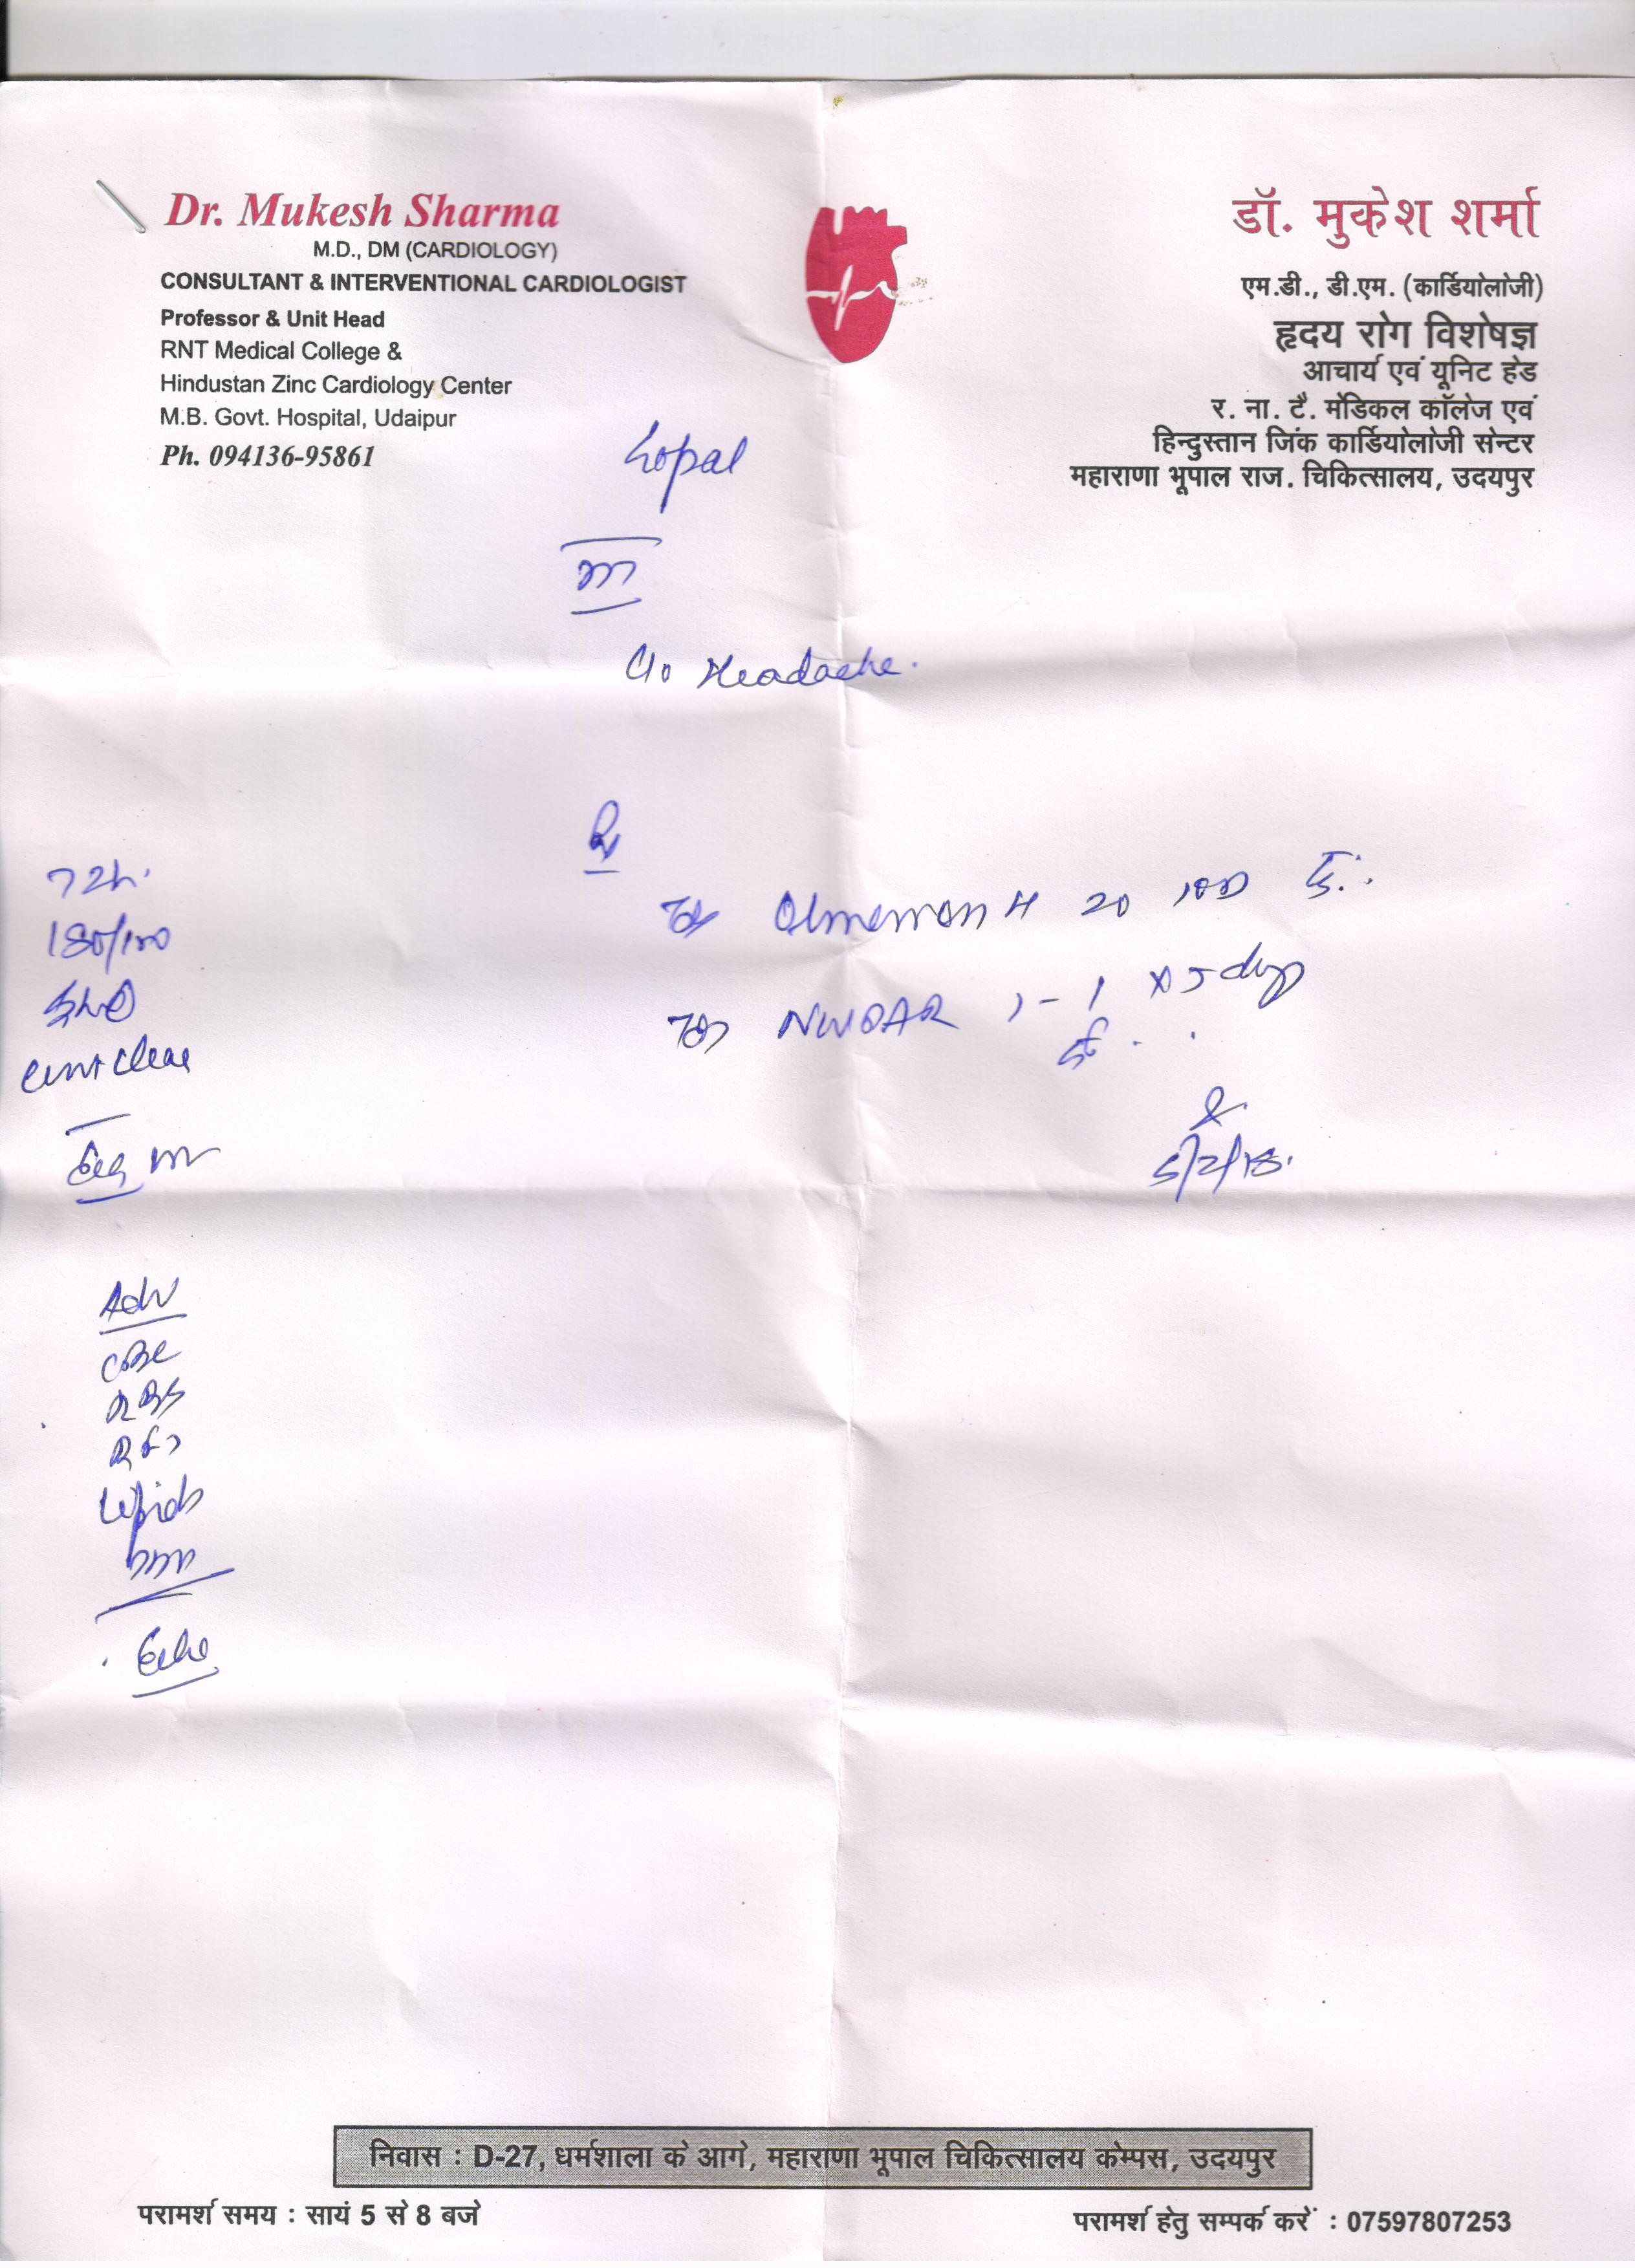 Dr. Mukesh Sharma
M.D., DM (CARDIOLOGY)
CONSULTANT & INTERVENTIONAL CARDIOLOGIST
Professor & Unit Head
RNT Medical College &
Hindustan Zinc Cardiology Center
M.B. Govt. Hospital, Udaipur
Ph. 094136-95861
डॉ. मुकेश शर्मा
एम.डी., डी.एम. (कार्डियोलोजी)
हृदय रोग विशेषज्ञ
आचार्य एवं यूनिट हेड
र. ना. टै. मेडिकल कॉलेज एवं
हिन्दुस्तान जिंक कार्डियोलोजी सेन्टर
महाराणा भूपाल राज. चिकित्सालय, उदयपुर
Gopal
C/o Headache.
Rx
H 20
1-1 x 5 days
5/2/18.
180/100
clear
Adv
CBC
RBS
RFT
Lipids
Echo
निवास : D-27, धर्मशाला के आगे, महाराणा भूपाल चिकित्सालय केम्पस, उदयपुर
परामर्श समय : सायं 5 से 8 बजे
परामर्श हेतु सम्पर्क करें : 07597807253